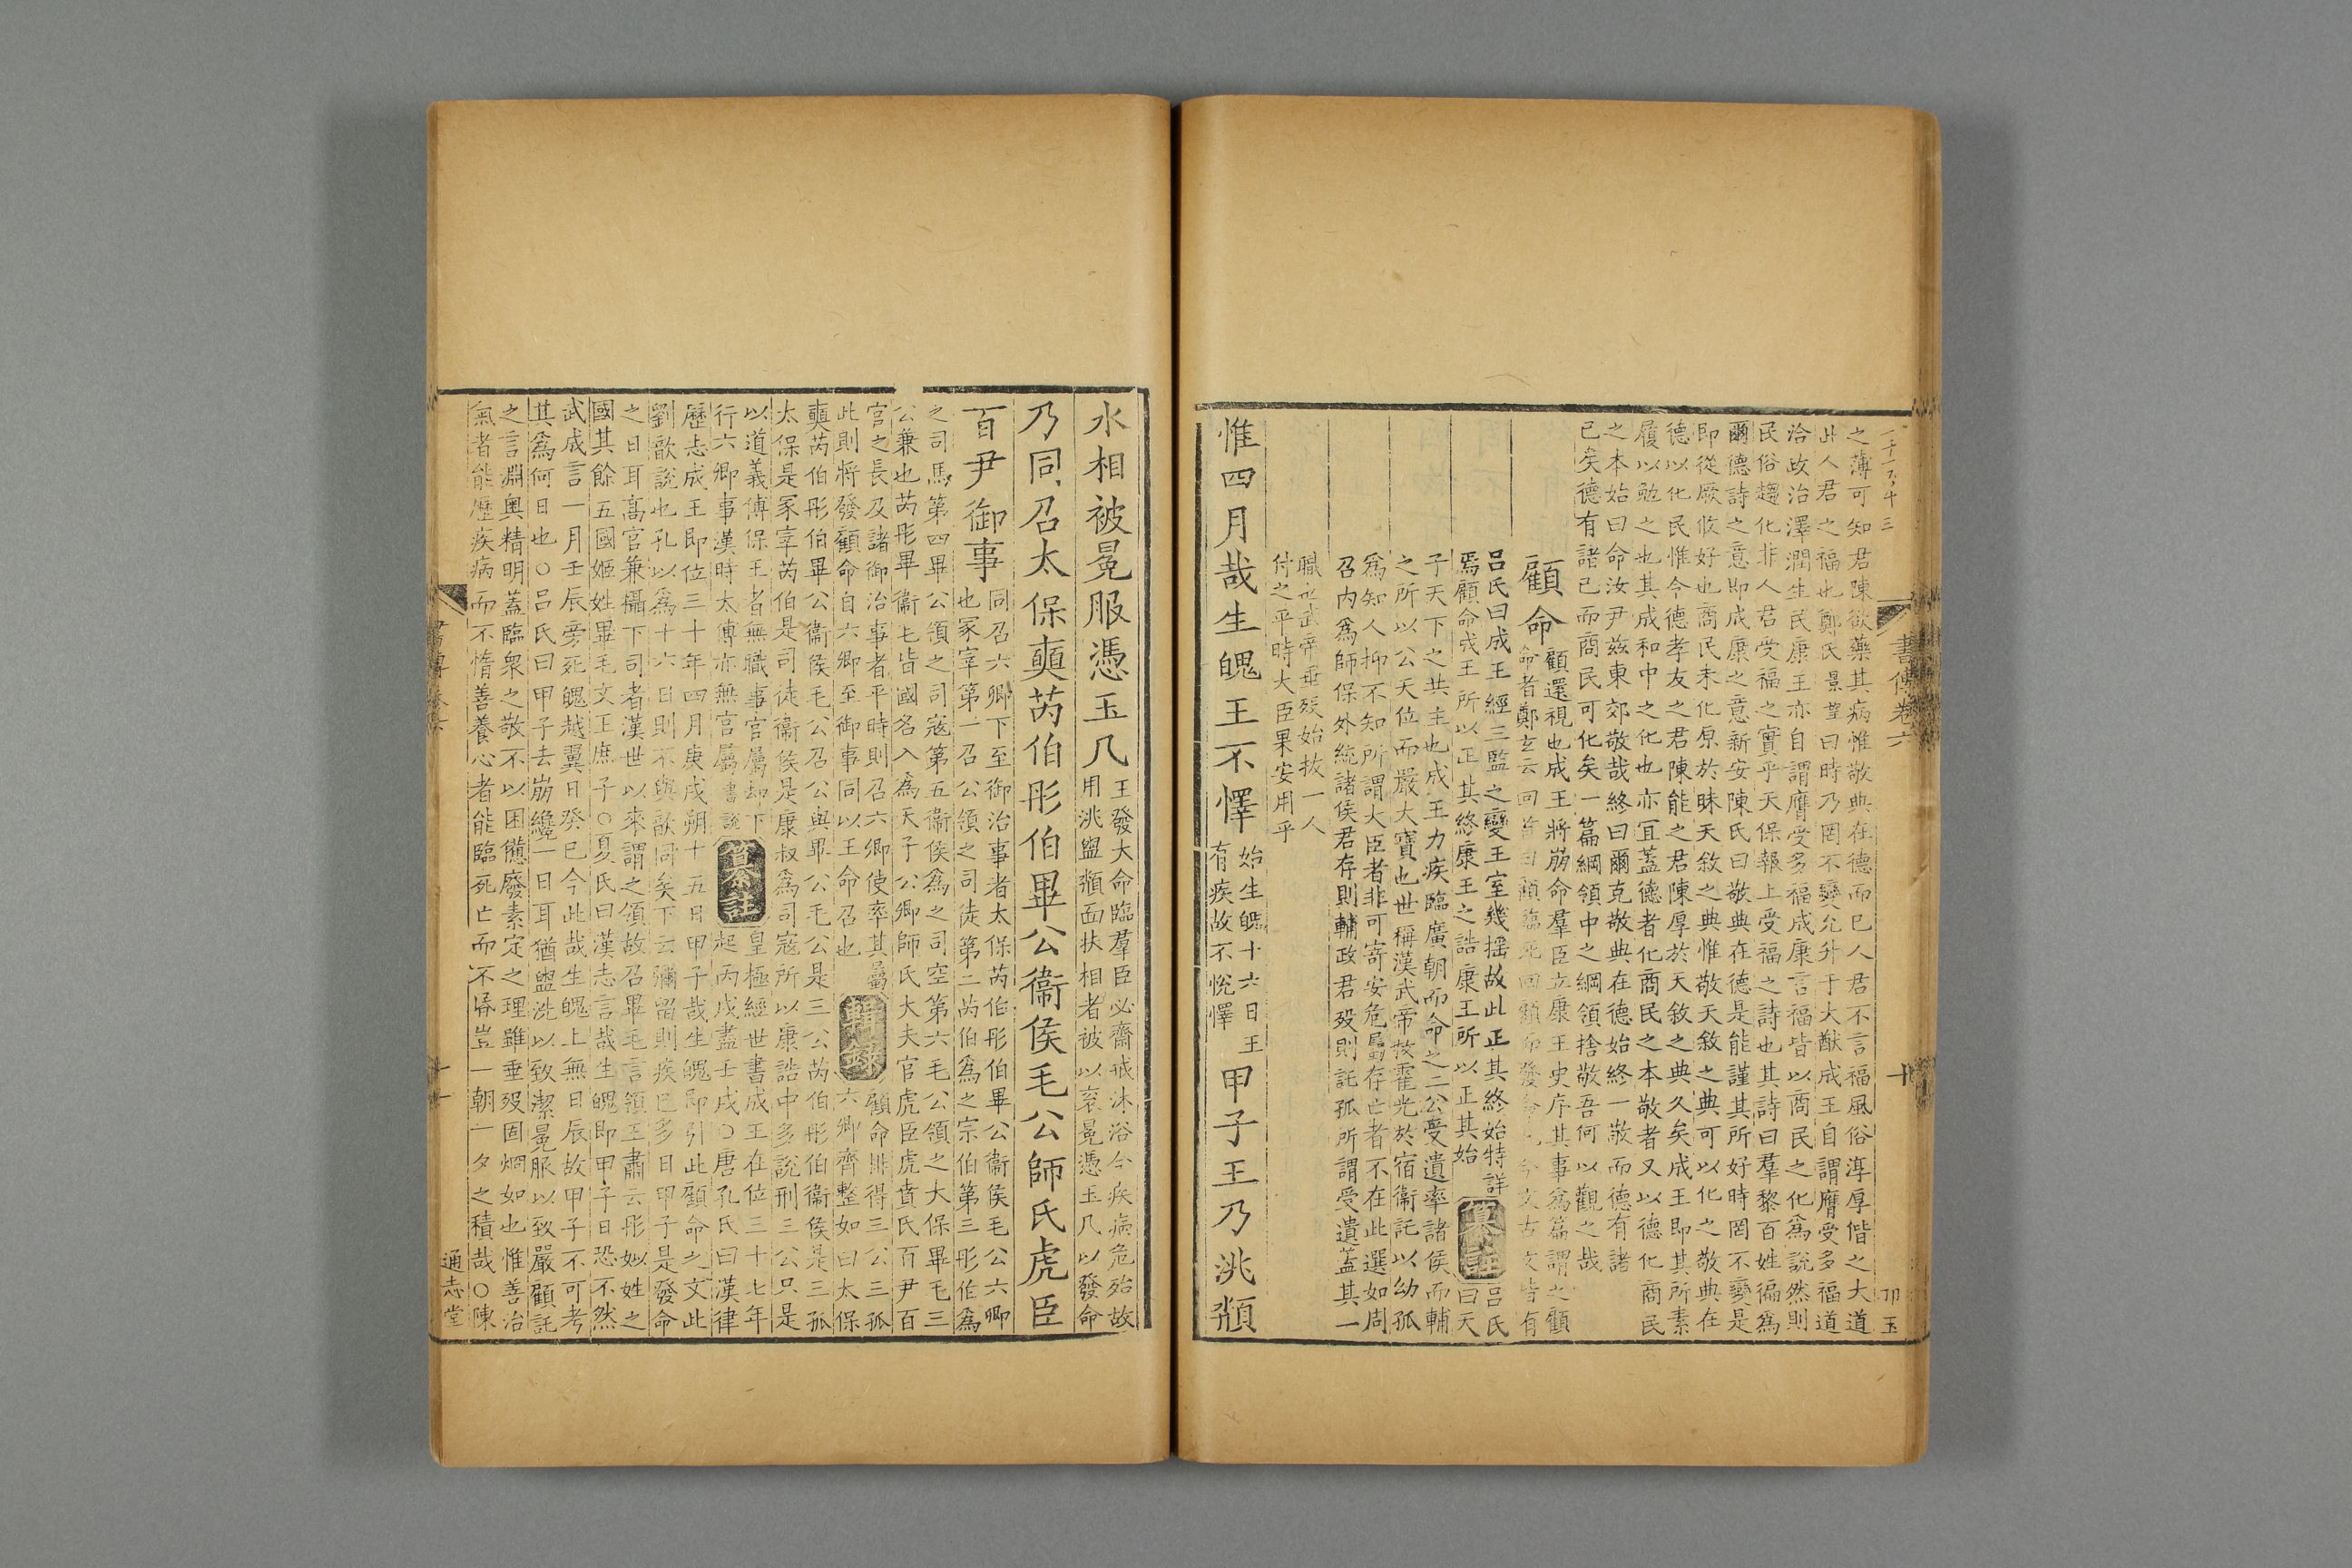 之薄可知君陳欲藥其病惟敬典在德而已人君不言福風俗淳厚偕之大道
此人君之福也鄭氏景望曰時乃罔不變允升于大猷成王自謂膺受多福道
洽政治澤潤生民康王亦自謂膺受多福成康言福皆以商民之化為說然則
民俗趨化非人君受福之實乎天保報上受福之詩也其詩曰羣黎百姓徧為
爾德詩之意即成康之意新安陳氏曰敬典在德是能謹其所好時罔不變是
即從厥攸好也商民未化原於昧天敘之典惟敬天敘之典可以化之敬典在
德以化民惟今德孝友之君陳能之君陳厚於天敘之典久矣成王即其所素
履以勉之也其成和中之化也亦宜蓋德者化商民之本敬者又以德化商民
之本始曰命汝尹茲東郊敬哉終曰爾克敬典在德始終一敬而德有諸
已矣德有諸已而商民可化矣一篇綱領中之綱領捨敬吾何以觀之哉
顧命
顧還視也成王將崩命羣臣立康王史序其事為篇謂之顧
命者鄭玄云回首曰顧臨死回顧而發命也今文古文皆有
呂氏曰成王經三監之變王室幾搖故此正其終始特詳
焉顧命成王所以正其終康王之誥康王所以正其始
纂註
呂氏
曰天
子天下之共主也成王力疾臨廣朝而命之二公受遺率諸侯而輔
之所以公天位而嚴大寶也世稱漢武帝故霍光於宿衞託以幼孤
為知人抑不知所謂大臣者非可寄安危屬存亡者不在此選如周
召內為師保外統諸侯君存則輔政君歿則託孤所謂受遺蓋其一
職也武帝垂歿始拔一人
付之平時大臣果安用乎
惟四月哉生魄王不懌
始生魄十六日王
有疾故不悅懌
甲子王乃洮頮
書傳卷六
十
水相被冕服憑玉几
王發大命臨羣臣必齋戒沐浴今疾病危殆故
用洮盥頮面扶相者被以袞冕憑玉几以發命
乃同召太保奭芮伯彤伯畢公衞侯毛公師氏虎臣
百尹御事
同召六卿下至御治事者太保芮伯彤伯畢公衞侯毛公六卿
也冢宰第一召公領之司徒第二芮伯為之宗伯第三彤伯為
之司馬第四畢公領之司寇第五衞侯為之司空第六毛公領之大保畢毛三
公兼也芮彤畢衞毛皆國名入為天子公卿師氏大夫官虎臣虎賁氏百尹百
官之長及諸御治事者平時則召六卿使率其屬
此則將發顧命自六卿至御事同以王命召也
輯錄
顧命排得三公三孤
六卿齊整如曰太保
奭芮伯彤伯畢公衞侯毛公召公與畢公毛公是三公芮伯彤伯衞侯是三孤
太保是冢宰芮伯是司徒衞侯是康叔為司寇所以康誥中多說刑三公只是
以道義傅保王者無職事官屬却下
行六卿事漢時太傅亦無官屬書說
皇極經世書成王在位三十七年
起丙戌盡壬戌○唐孔氏曰漢律
歷志成王即位三十年四月庚戌朔十五日甲子哉生魄即引此顧命之文此
劉歆說也孔以為十六日則不與歆同矣下云彌留則疾已多日甲子是發命
之日耳高官兼攝下司者漢世以來謂之領故召畢毛言領王肅云彤姒姓之
國其餘五國姬姓畢毛文王庶子○夏氏曰漢志言哉生魄即甲子日恐不然
武成言一月壬辰旁死魄越翼日癸巳今此哉生魄上無日辰故甲子不可考
其為何日也○呂氏曰甲子去崩纔一日耳猶盥洮以致潔冕服以致嚴顧託
之言淵奧精明蓋臨衆之敬不以困憊廢素定之理雖垂歿固烱如也惟善治
氣者能歷疾病而不惰善養心者能臨死亡而不昏豈一朝一夕之積哉○陳
通志堂